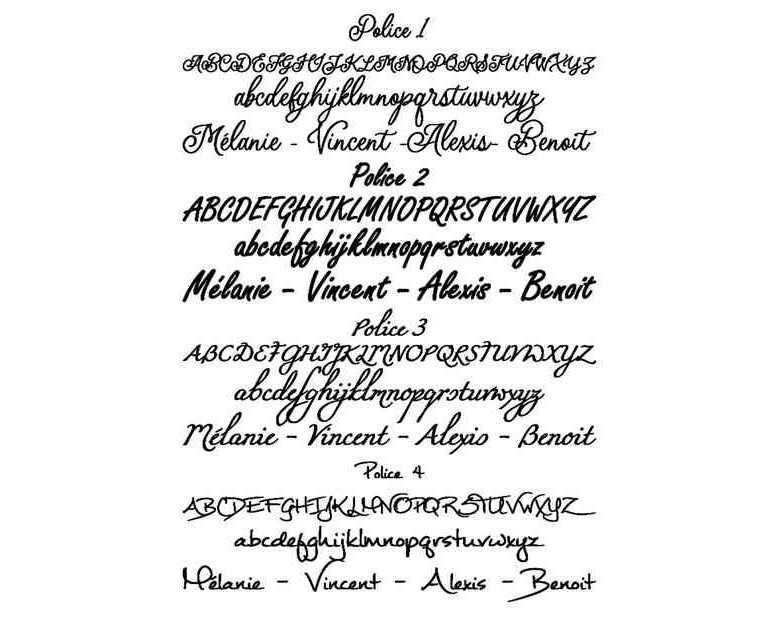 Police 1
ABCDEFGHIJKLMNOPQRSTUVWXYZ
abcdefghijklmnopqrstuvwxyz
Mélanie - Vincent -Alexis- Benoit
Police 2
ABCDEFGHIJKLMNOPQRSTUVWXYZ
abcdefghijklmnopqrstuvwxyz
Mélanie - Vincent - Alexis - Benoit
Police 3
ABCDEFGHIJKLMNOPQRSTUVWXYZ
abcdefghijklmnopqrstuvwxyz
Mélanie - Vincent - Alexis - Benoit
Police 4
ABCDEFGHIJKLMNOPQRSTUVWXYZ
abcdefghijklmnopqrstuvwxyz
Mélanie - Vincent - Alexis - Benoit